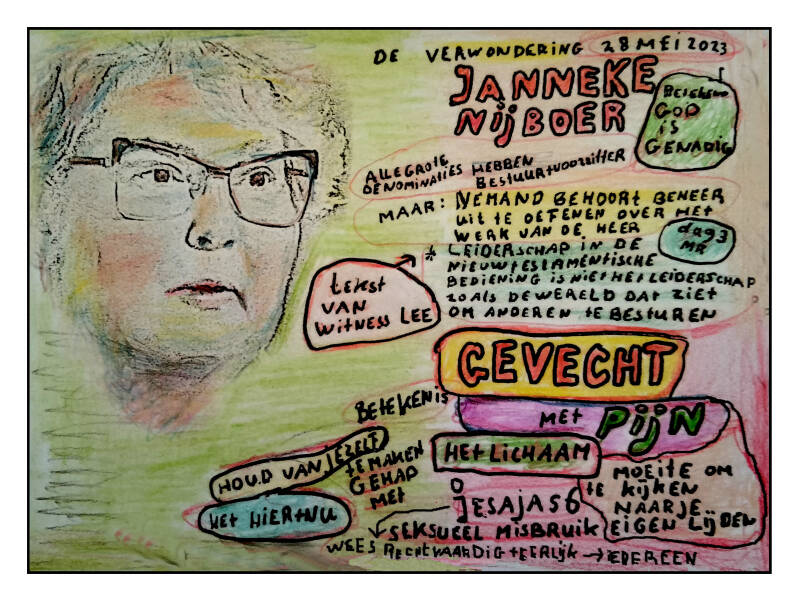 DE VERWONDERING 28 MEI 2023
JANNEKE
NijBOER
BETEKENIS
GOD
iS
GENADIG
ALLE GROTE
DENOMINATIES HEBBEN
BESTUUR+VOORZITTER
MAAR: NIEMAND BEHOORT BEHEER
UIT TE OEFENEN OVER HET
WERK VAN DE HEER
dag 3
MR
* LEIDERSCHAP IN DE
NIEUWTESTAMENTISCHE
BEDIENING IS NIET HET LEIDERSCHAP
ZOALS DE WERELD DAT ZIET
OM ANDEREN TE BESTUREN
tekst
VAN
WITNESS LEE
GEVECHT
MET PijN
BETEKENIS
HET LICHAAM
HOUD VAN JEZELF
TE MAKEN
GEHAD
MET
HET HIER+NU
MOEITE OM
TE KIJKEN
NAAR JE
EIGEN LIJDEN
JESAJA 56
SEKSUEEL MISBRUIK
WEES RECHTVAARDIG + EERLIJK → IEDEREEN